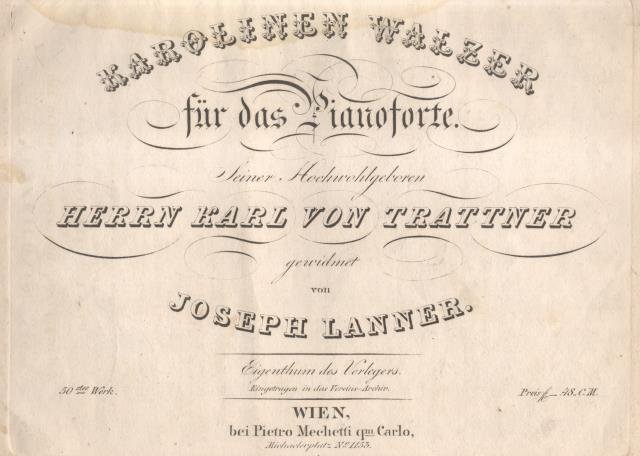 KAROLINEN WALZER
für das Pianoforte.
Seiner Hochwohlgeboren
HERRN KARL VON TRATTNER
gewidmet
von
JOSEPH LANNER.
Eigenthum des Verlegers.
Eingetragen in das Vereins-Archiv.
50stes Werk.
Preis f_ 48. C.M.
WIEN,
bei Pietro Mechetti qm Carlo,
Michaelerplatz No. 1153.